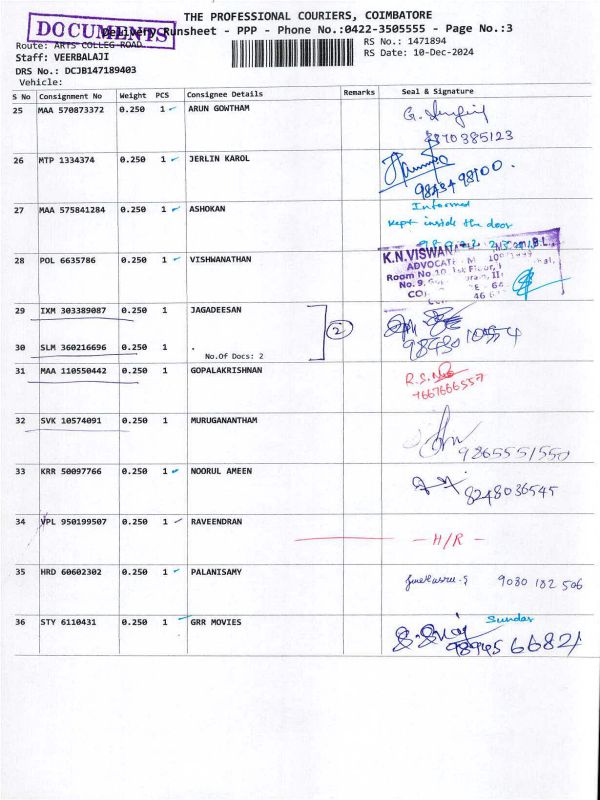 THE PROFESSIONAL COURIERS, COIMBATORE
DOCUMENTS
Delivery Runsheet - PPP - Phone No.:0422-3505555 - Page No.:3
Route: ARTS COLLEG ROAD
RS No.: 1471894
Staff: VEERBALAJI
RS Date: 10-Dec-2024
DRS No.: DCJB147189403
Vehicle:
S No Consignment No Weight PCS Consignee Details Remarks Seal & Signature
25 MAA 570873372 0.250 1 ARUN GOWTHAM
70385123
26 MTP 1334374 0.250 1 JERLIN KAROL
27 MAA 575841284 0.250 1 ASHOKAN Informed
kept inside the door
28 POL 6635786 0.250 1 VISHWANATHAN
K.N.VISWAN
ADVOCATE
Room No 10, 1st Floor,
No. 9,
29 IXM 303389087 0.250 1 JAGADEESAN
2
30 SLM 360216696 0.250 1 .
No.Of Docs: 2
31 MAA 110550442 0.250 1 GOPALAKRISHNAN
7667666557
32 SVK 10574091 0.250 1 MURUGANANTHAM
9865551550
33 KRR 50097766 0.250 1 NOORUL AMEEN
8248036545
34 VPL 950199507 0.250 1 RAVEENDRAN - H/R -
35 HRD 60602302 0.250 1 PALANISAMY
9080 182 506
36 STY 6110431 0.250 1 GRR MOVIES Sundar